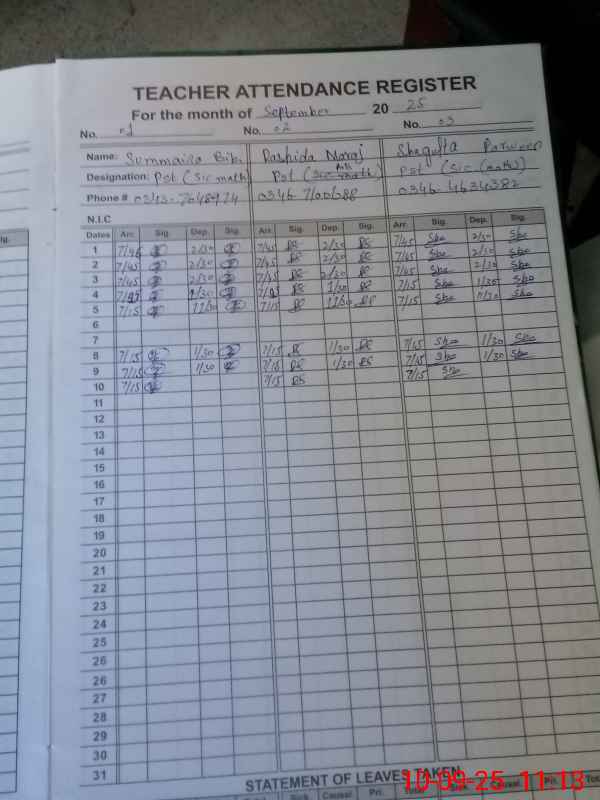 TEACHER ATTENDANCE REGISTER
For the month of September 20 25
No. 01 No. 02 No. 03
Name: Summaira Bibi Rashida Shagufta Parveen
Designation: Pst (Sic math) Pst Pst (Sic (math)
Phone # 0346 0346 4634382
N.I.C
Dates Arr. Sig. Dep. Sig. Arr. Sig. Dep. Sig. Arr. Sig. Dep. Sig.
1 7/45 2/30 7/45 RS 2/30 RS 7/45 Sho 2/30 Sho
2 7/45 2/30 7/45 RS 2/30 RS 7/45 Sho 2/30 Sho
3 7/45 2/30 7/45 RS 2/30 RS 7/45 Sho 2/30 Sho
4 1/30 RS 1/30 RS 7/15 Sho 1/30 Sho
5 7/15 7/15 RS RS 7/15 Sho Sho
6
7
8 7/15 1/30 7/15 RS 1/30 RS 7/15 Sho 1/30 Sho
9 7/15 1/30 7/15 RS 1/30 RS 7/15 Sho 1/30 Sho
10 7/15 7/15 RS 7/15 Sho
11
12
13
14
15
16
17
18
19
20
21
22
23
24
25
26
26
27
28
29
30
31
STATEMENT OF LEAVES TAKEN
Sick Causal Pri. Total Sick Pri.
ig.
10-09-25 11:13